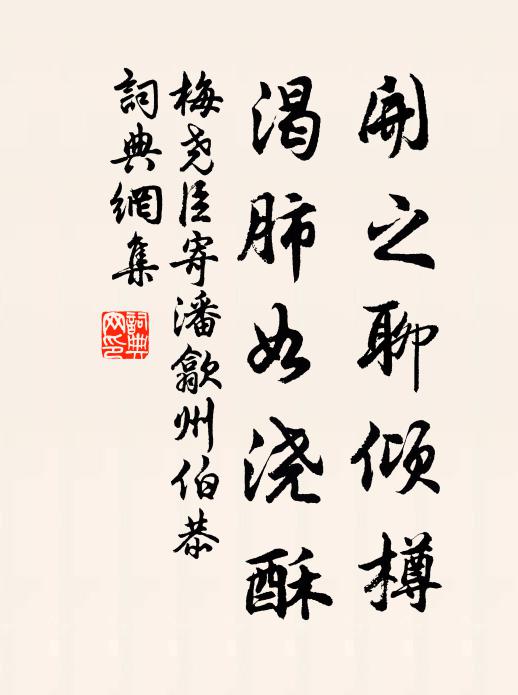 開之聊倾樽
渴肺如浇酥
梅尧臣寄潘歙州伯恭
詞典網集
詞典
网印